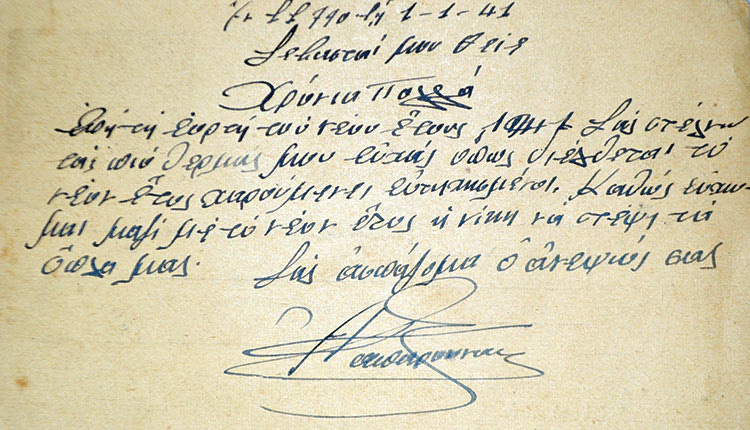 Τ.Τ. 790 τῇ 1-1-41
Σεβαστοί μου Θεῖε
Χρόνια Πολλά
Ἐπί τῇ ἑορτῇ τοῦ νέου ἔτους 1941 Σᾶς στέλνω
τάς πιό θερμάς μου εὐχάς ὅπως διέλθεται τό
νέον ἔτος χαρούμενοι εὐτυχισμένοι. Καθώς εὔχο-
μαι μαζί μέ τό νέον ἔτος ἡ νίκη νά στέψῃ τά
ὅπλα μας. Σᾶς ἀσπάζομαι ὁ ἀνεψιός σας